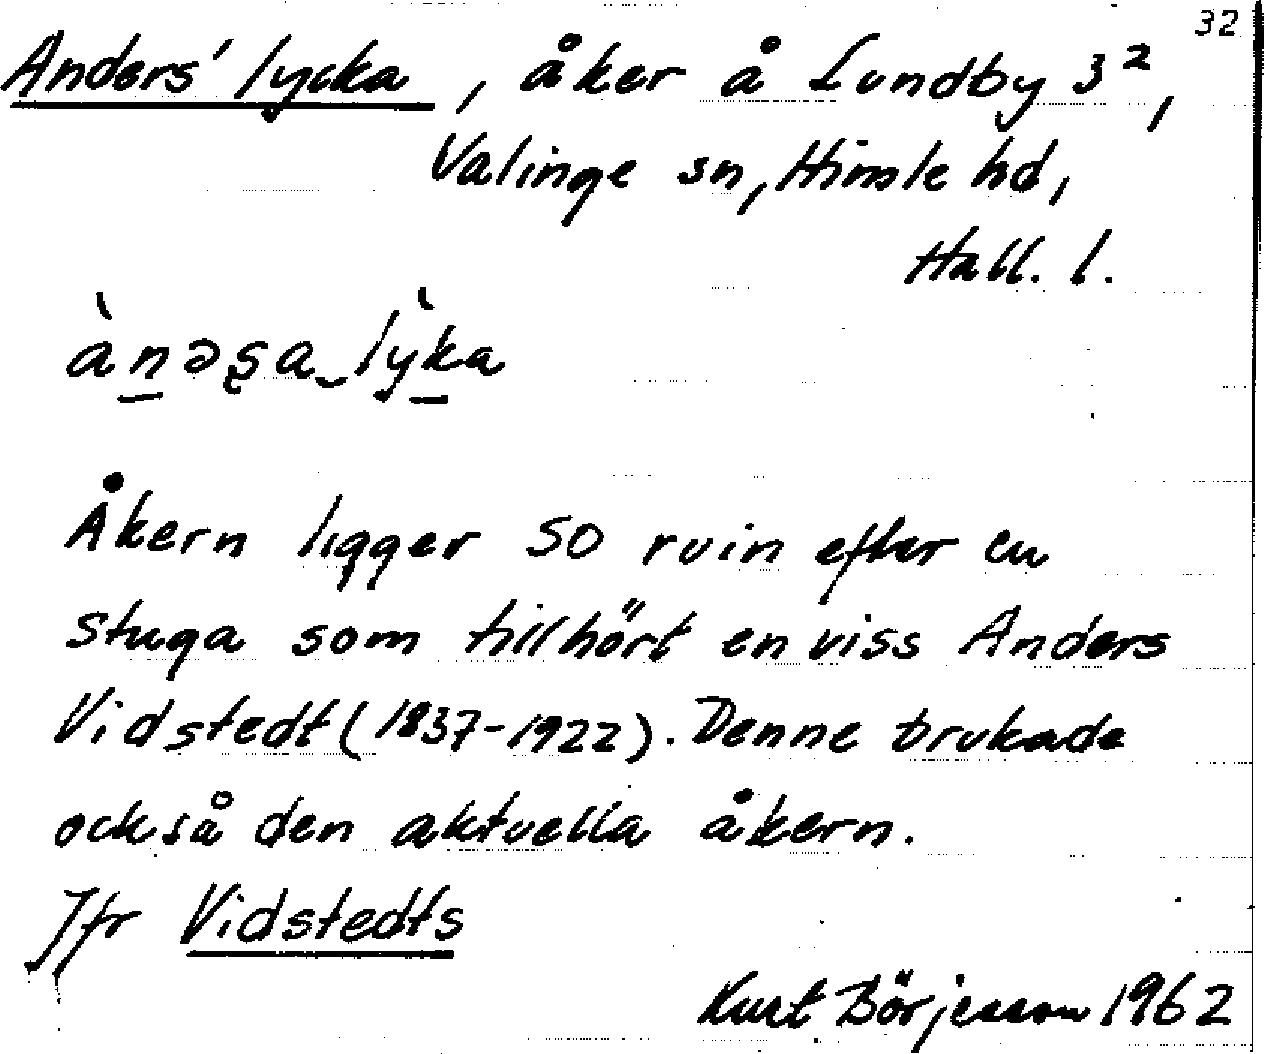 32
Anders' lycka, åker å Lundby 3²,
Valinge sn, Himle hd,
Hall. l.
ànəʂa lỳka
Åkern ligger SO ruin efter en
stuga som tillhört en viss Anders
Vidstedt (1837-1922). Denne brukade
också den aktuella åkern.
Jfr Vidstedts
Kurt Börjesson 1962